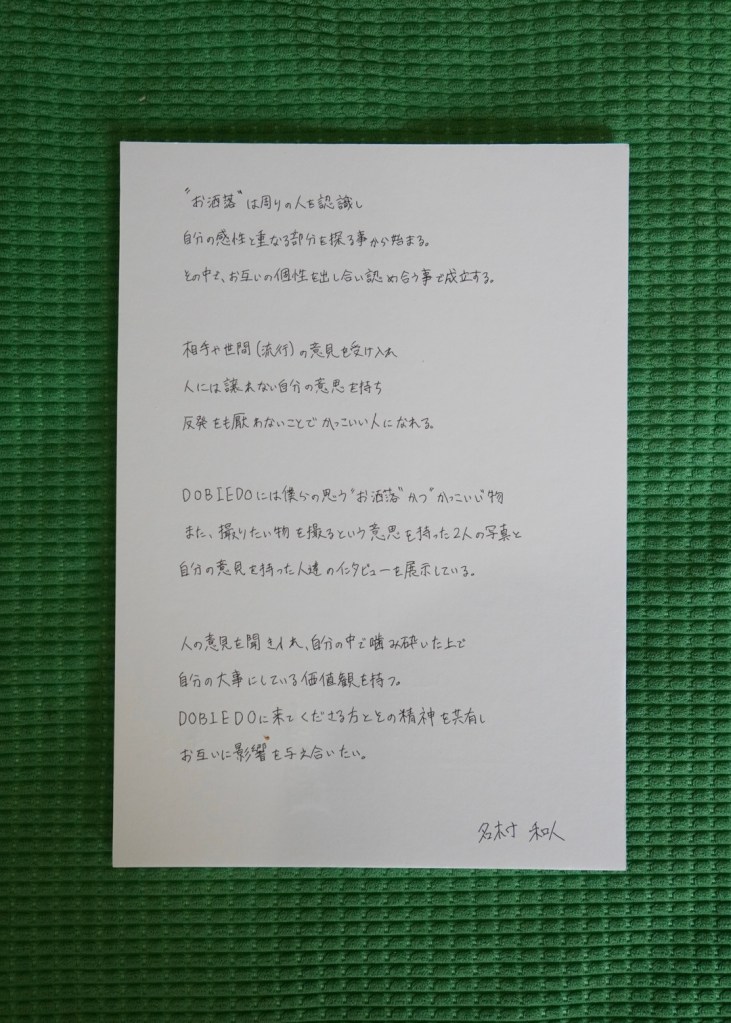 "お洒落"は周りの人を認識し
自分の感性と重なる部分を探る事から始まる。
その中で、お互いの個性を出し合い認め合う事で成立する。
相手や世間(流行)の意見を受け入れ
人には譲れない自分の意思を持ち
反発をも厭わないことでかっこいい人になれる。
DOBIEDOには僕らの思う"お洒落"かつ"かっこいい"物
また、撮りたい物を撮るという意思を持った2人の写真と
自分の意見を持った人達のインタビューを展示している。
人の意見を聞き入れ、自分の中で噛み砕いた上で
自分の大事にしている価値観を持つ。
DOBIEDOに来てくださる方とその精神を共有し
お互いに影響を与え合いたい。
名村 和人